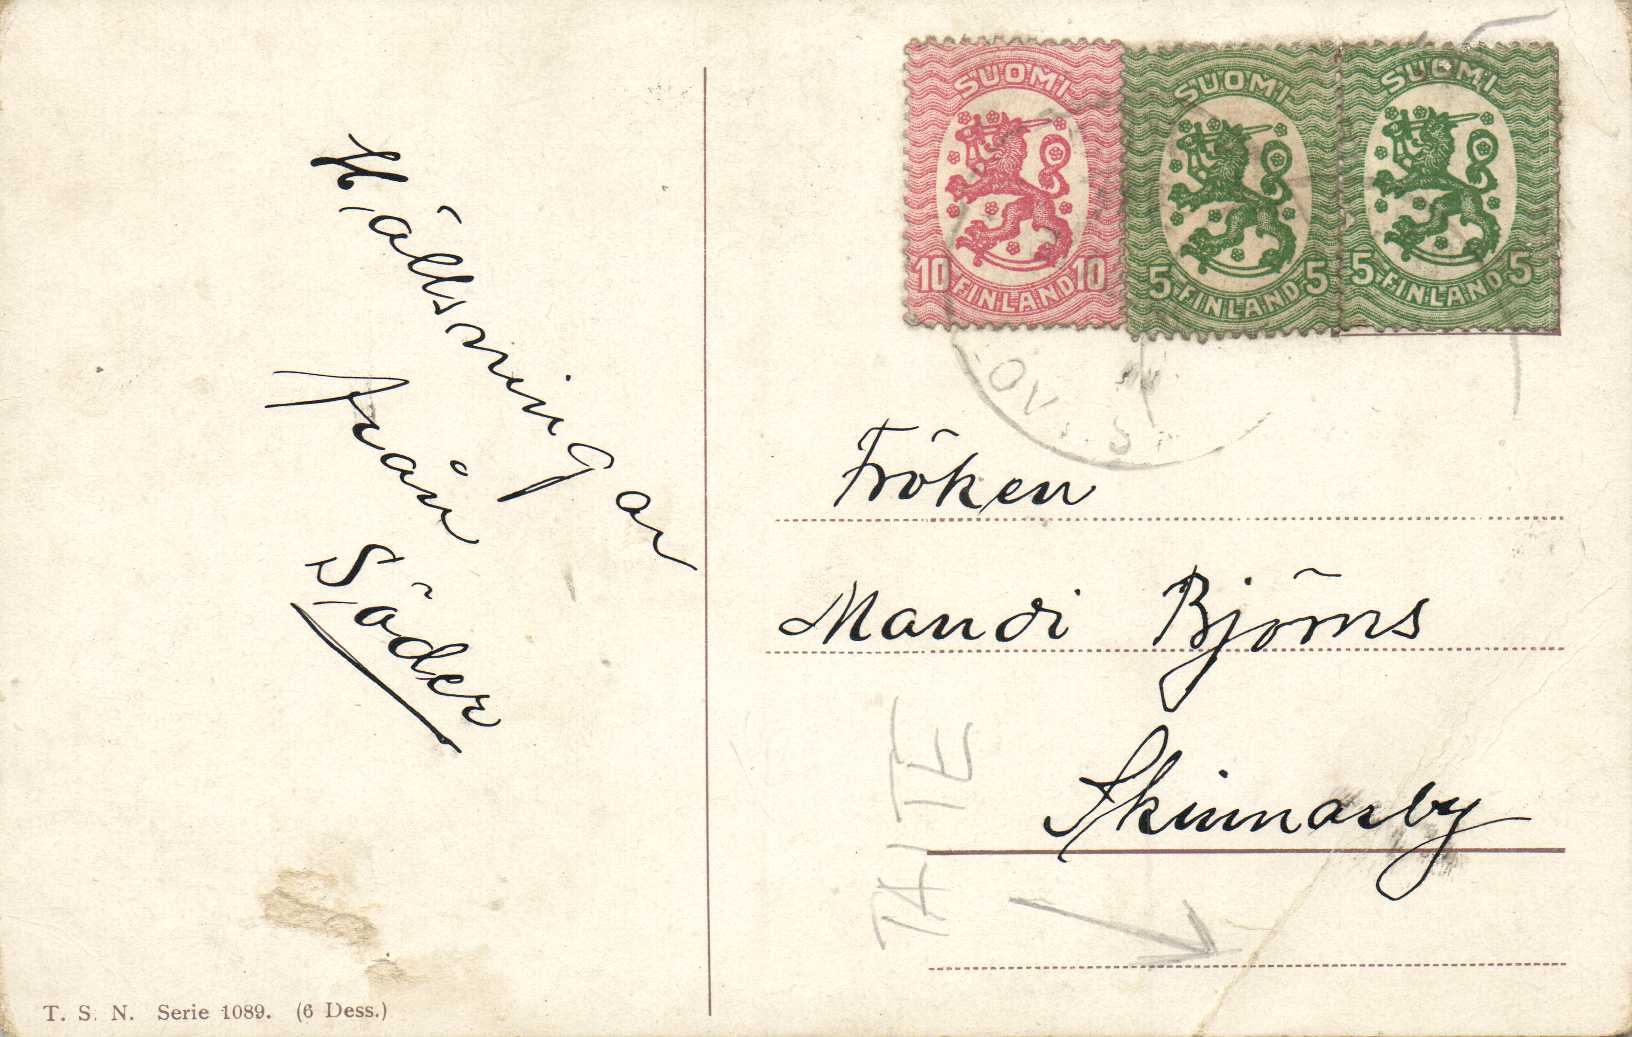 Hälsningar
från
Söder
T. S. N. Serie 1089. (6 Dess.)
SUOMI
10 FINLAND 10
SUOMI
5 FINLAND 5
SUOMI
5 FINLAND 5
Fröken
Mandi Björns
Skinnarby
TAITE